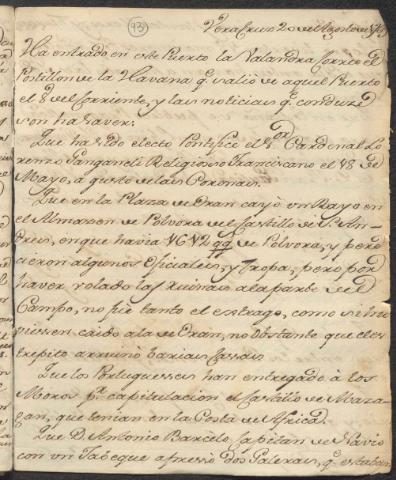 93
Veracruz 20 de Agosto de
Ha entrado en este Puerto la Valandra Correo el
Postillon de la Havana qe salió de aquel Puerto
el 8 del Corriente, y las noticias qe conduce
son ha haver:
Que ha sido electo Pontifice el Sor Cardenal Lo
renzo Ganganeli Religioso Franciscano el 18 de
Mayo, a gusto de las Coronas.
Que en la Plaza de Oran cayó un Rayo en
el Almazen de Polvora del Castillo de Sn An
dres, en que havia 1612 qq de Polvora, y pere
cieron algunos Oficiales, y Tropa, pero por
haver volado las Ruinas a la parte del
Campo, no fue tanto el estrago, como si hu
viesen caido a la de Oran, no obstante que el es
trepito arruinó barias Cassas
Que los Portuguesses han entregado à los
Moros pr capitulacion el Castillo de Maza
gan, que tenian en la Costa de Africa
Que D. Antonio Barcelo Capitan de Navio
con un Jabeque apressó dos Galeras, qe estaban